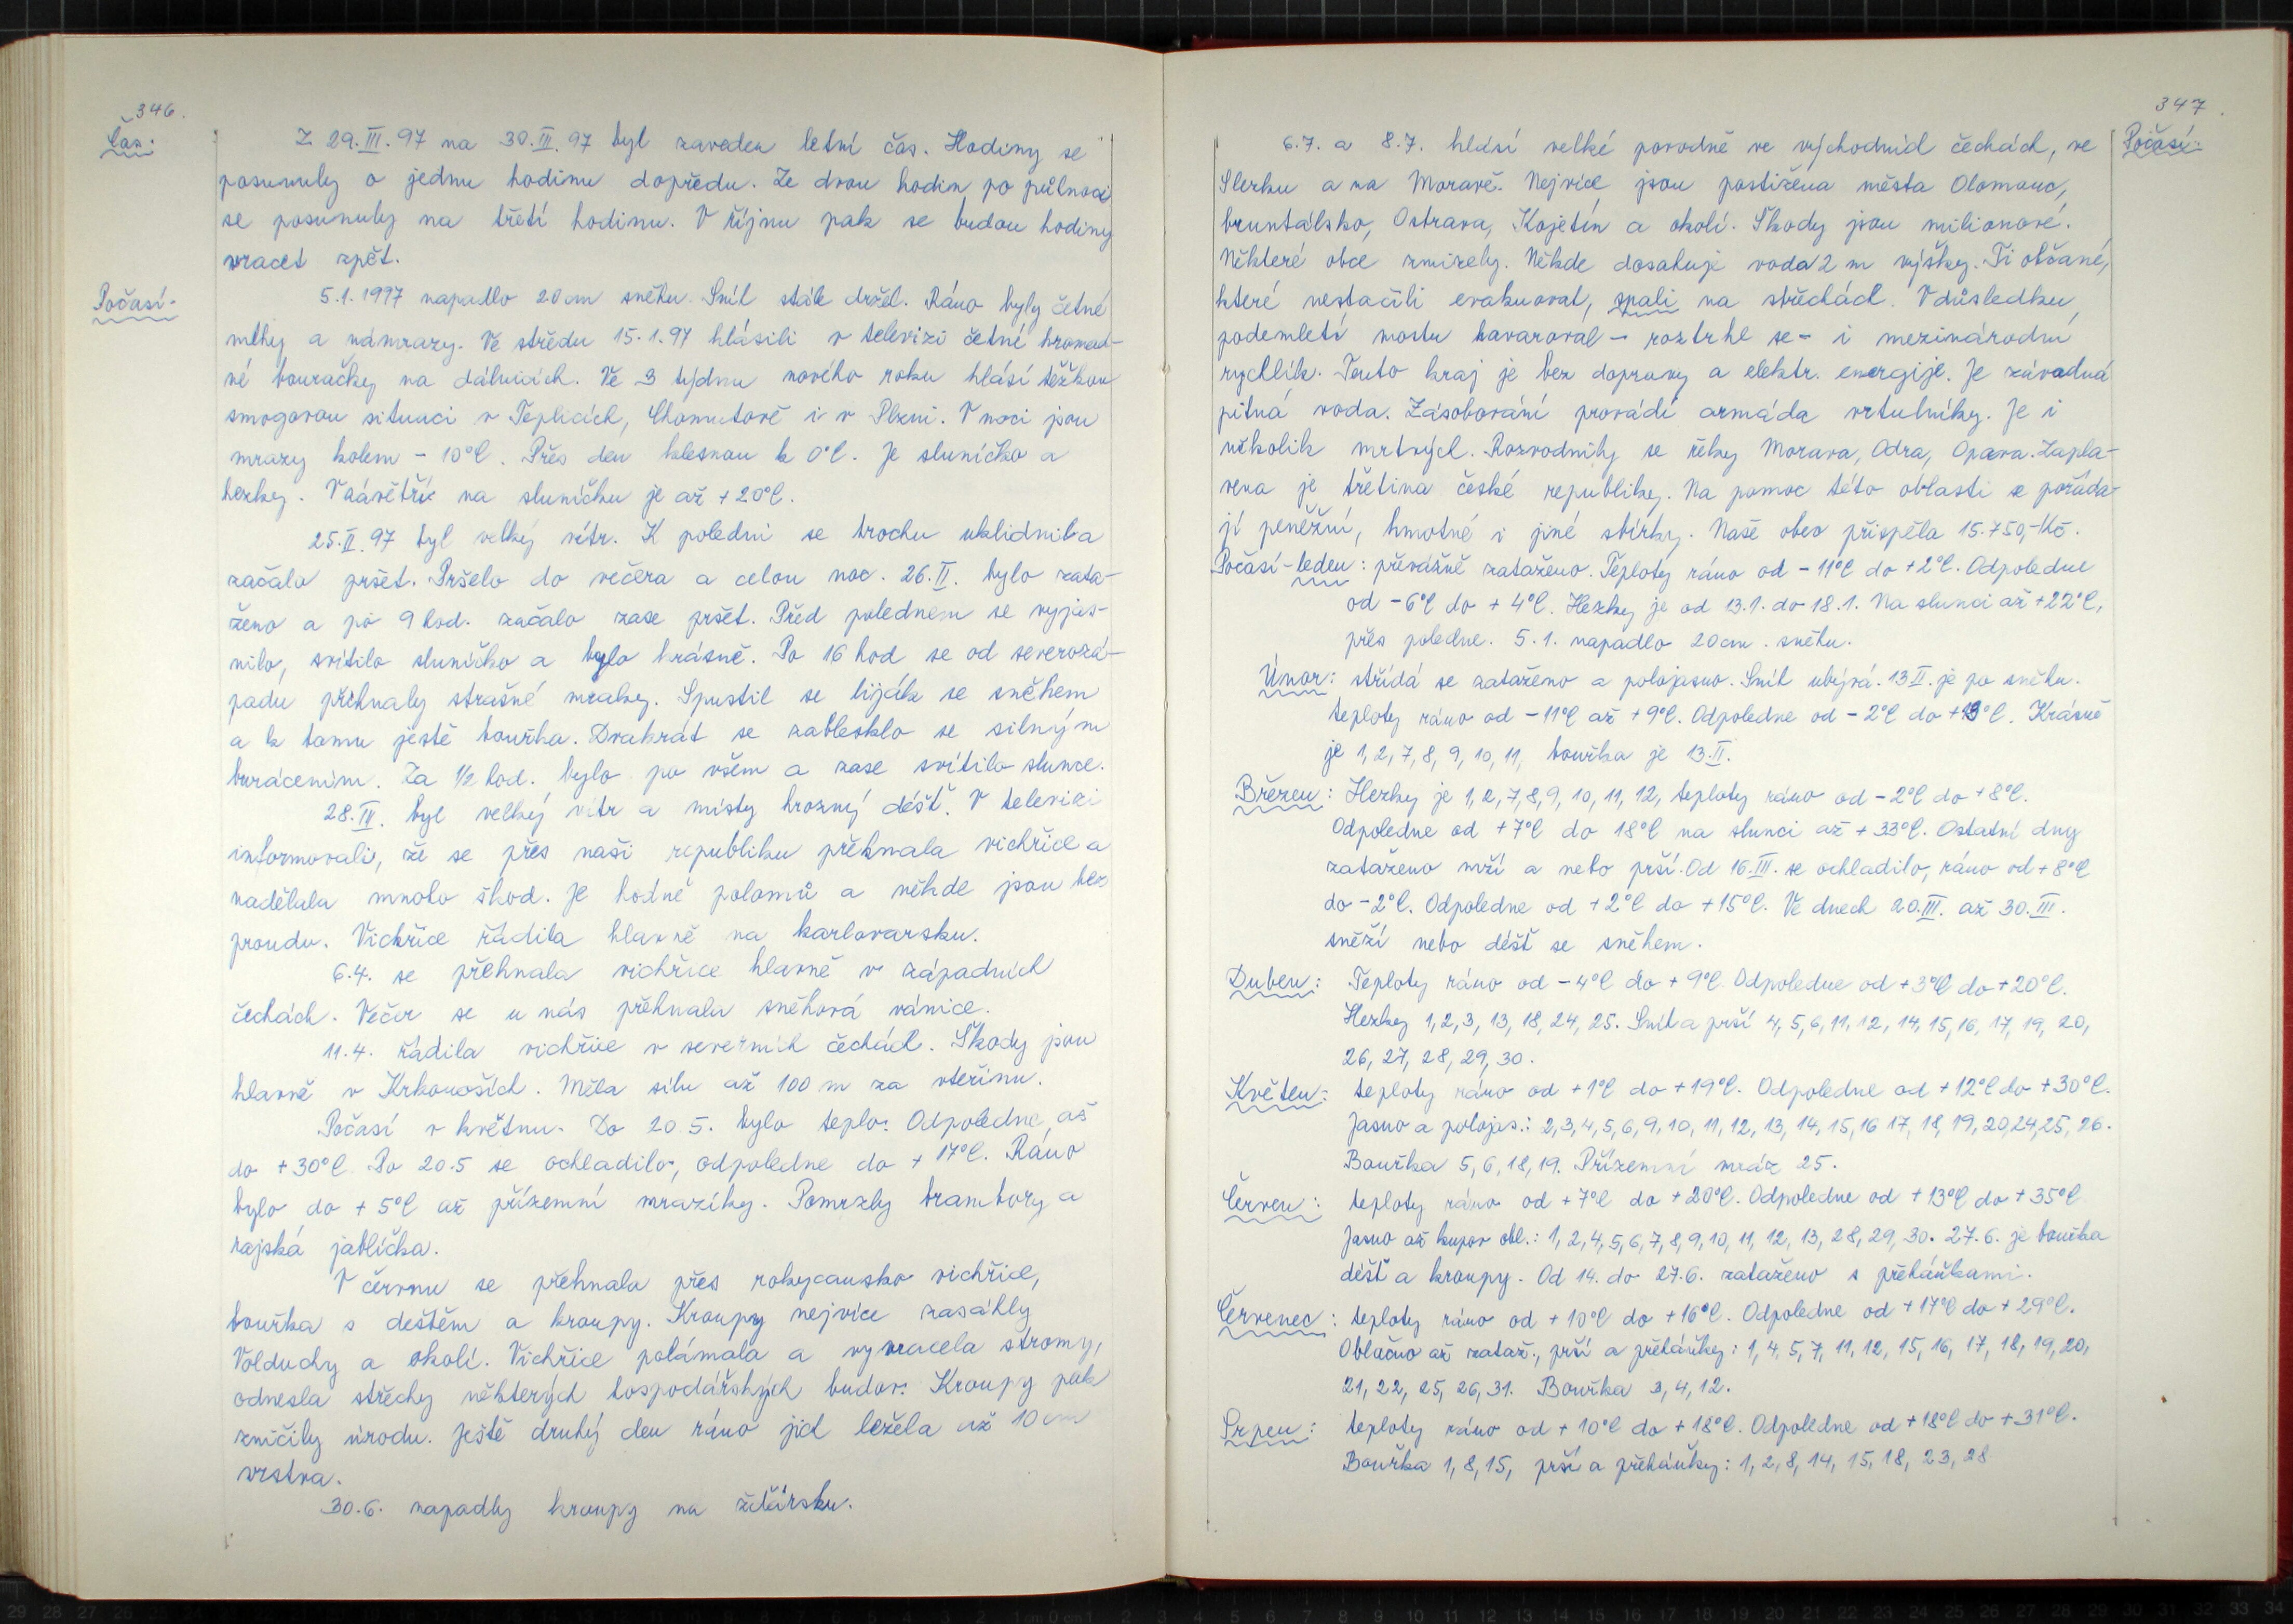 346.
Čas:
Z 29.III.97 na 30.III.97 byl zaveden letní čas. Hodiny se
posunuly o jednu hodinu dopředu. Ze dvou hodin po půlnoci
se posunuly na třetí hodinu. V říjnu pak se budou hodiny
vracet zpět.
Počasí-
5.1.1997 napadlo 20cm sněhu. Sníh stále držel. Ráno byly četné
mlhy a námrazy. Ve středu 15.1.97 hlásili v televizi četné hromad-
né bouračky na dálnicích. Ve 3 týdnu nového roku hlásí těžkou
smogovou situaci v Teplicích, Chomutově i v Plzni. V noci jsou
mrazy kolem - 10°C. Přes den klesnou k 0°C. Je sluníčko a
hezky. V závětří na sluníčku je až +20°C.
25.II.97 byl velký vítr. K poledni se trochu uklidnil a
začalo pršet. Pršelo do večera a celou noc. 26.II. bylo zata-
ženo a po 9 hod. začalo zase pršet. Před polednem se vyjas-
nilo, svítilo sluníčko a bylo krásně. Po 16 hod se od severozá-
padu přihnaly strašné mraky. Spustil se liják se sněhem
a k tomu ještě bouřka. Dvakrát se zablesklo se silným
burácením. Za 1/2 hod. bylo po všem a zase svítilo slunce.
28.III. byl velký vítr a místy hrozný déšť. V televizi
informovali, že se přes naši republiku přehnala vichřice a
nadělala mnoho škod. Je hodně polomů a někde jsou bez
proudu. Vichřice řádila hlavně na karlovarsku.
6.4. se přehnala vichřice hlavně v západních
čechách. Večer se u nás přehnala sněhová vánice.
11.4. řádila vichřice v severních čechách. Škody jsou
hlavně v Krkonoších. Měla sílu až 100 m za vteřinu.
Počasí v květnu. Do 20.5. bylo teplo. Odpoledne až
do +30°C. Po 20.5 se ochladilo, odpoledne do + 17°C. Ráno
bylo do + 5°C až přízemní mrazíky. Pomrzly brambory a
rajská jablíčka.
V červnu se přehnala přes rokycansko vichřice,
bouřka s deštěm a kroupy. Kroupy nejvíce zasáhly
Volduchy a okolí. Vichřice polámala a vyvracela stromy,
odnesla střechy některých hospodářských budov. Kroupy pak
zničily úrodu. Ještě druhý den ráno jich ležela až 10 cm
vrstva.
30.6. napadly kroupy na
347
Počasí:
6.7. a 8.7. hlásí velké povodně ve východních čechách, ve
Slezku a na Moravě. Nejvíce jsou postižena města Olomouc,
bruntálsko, Ostrava, Kojetín a okolí. Škody jsou milionové.
Některé obce zmizely. Někde dosahuje voda 2 m výšky. Ti občané,
které nestačili evakuovat, spali na střechách. V důsledku
podemletí mostu havaroval - roztrhl se - i mezinárodní
rychlík. Tento kraj je bez dopravy a elektr. energije. Je závadná
pitná voda. Zásobování provádí armáda vrtulníky. Je i
několik mrtvých. Rozvodnily se řeky Morava, Odra, Opava. Zapla-
vena je třetina české republiky. Na pomoc této oblasti se pořáda-
jí peněžní, hmotné i jiné sbírky. Naše obec přispěla 15.750,-Kč.
Počasí-leden: převážně zataženo. Teploty ráno od - 11°C do +2°C. Odpoledne
od -6°C do + 4°C. Hezky je od 13.1. do 18.1. Na slunci až +22°C,
přes poledne. 5.1. napadlo 20cm. sněhu.
Únor: střídá se zataženo a polojasno. Sníh ubývá. 13.II. je po sněhu.
teploty ráno od -11°C až +9°C. Odpoledne od -2°C do +13°C. Krásně
je 1,2,7,8,9,10,11, bouřka je 13.II.
Březen: Hezky je 1,2,7,8,9,10,11,12, teploty ráno od -2°C do +8°C.
Odpoledne od +7°C do 18°C na slunci až +33°C. Ostatní dny
zataženo mží a nebo prší. Od 16.III. se ochladilo, ráno od +8°C
do -2°C. Odpoledne od +2°C do +15°C. Ve dnech 20.III. až 30.III.
sněží nebo déšť se sněhem.
Duben: Teploty ráno od -4°C do +9°C. Odpoledne od +3°C do +20°C.
Hezky 1,2,3,13,18,24,25. Sníh a prší 4,5,6,11,12,14,15,16,17,19,20,
26,27,28,29,30.
Květen: teploty ráno od +1°C do +19°C. Odpoledne od +12°C do +30°C.
Jasno a polojas.: 2,3,4,5,6,9,10,11,12,13,14,15,16 17,18,19,20,24,25,26.
Bouřka 5,6,18,19. Přízemní mráz 25.
Červen: teploty ráno od +7°C do +20°C. Odpoledne od +13°C do +35°C
Jasno až kupov obl.: 1,2,4,5,6,7,8,9,10,11,12,13,28,29,30. 27.6. je bouřka
déšť a kroupy. Od 14. do 27.6. zataženo s přeháňkami.
Červenec: teploty ráno od +10°C do +16°C. Odpoledne od +17°C do +29°C.
Oblačno až zataž., prší a přeháňky: 1,4,5,7,11,12,15,16,17,18,19,20,
21,22,25,26,31. Bouřka 3,4,12.
Srpen: teploty ráno od +10°C do +18°C. Odpoledne od +18°C do +31°C.
Bouřka 1,8,15, prší a přeháňky: 1,2,8,14,15,18,23,28